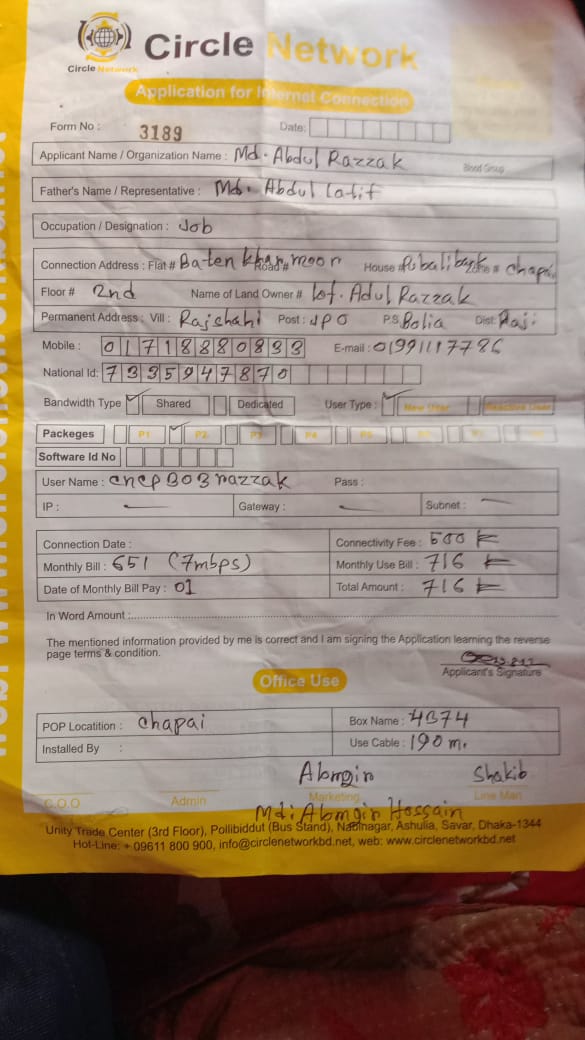 Circle Network
Circle Network
Application for Internet Connection
Form No : 3189 Date:
Applicant Name / Organization Name : Md. Abdul Razzak Blood Group
Father's Name / Representative : Md. Abdul Latif
Occupation / Designation : Job
Connection Address : Flat # Baten khan moon Road # House # Rubali bank # chapai
Floor # 2nd Name of Land Owner # Lot. Adul Razzak
Permanent Address : Vill : Rajshahi Post : JPO P.S Bolia Dist: Raj:
Mobile : 01718880833 E-mail : 01991117786
National Id: 7335947870
Bandwidth Type ✓ Shared Dedicated User Type : ✓ New User Reactive User
Packeges P1 ✓ P2 P3 P4 P5
Software Id No
User Name : cncp303razzak Pass :
IP : — Gateway : — Subnet : —
Connection Date : Connectivity Fee : 500
Monthly Bill : 651 (7mbps) Monthly Use Bill : 716
Date of Monthly Bill Pay : 01 Total Amount : 716
In Word Amount :
The mentioned information provided by me is correct and I am signing the Application learning the reverse
page terms & condition.
Applicant's Signature
Office Use
POP Locatition : chapai Box Name : 4374
Installed By : Use Cable : 190 m.
Alomgin Shakib
C.O.O Admin Marketing Line Man
Md: Alomgin Hossain
Unity Trade Center (3rd Floor), Pollibiddut (Bus Stand), Nabinagar, Ashulia, Savar, Dhaka-1344
Hot-Line: + 09611 800 900, info@circlenetworkbd.net, web: www.circlenetworkbd.net